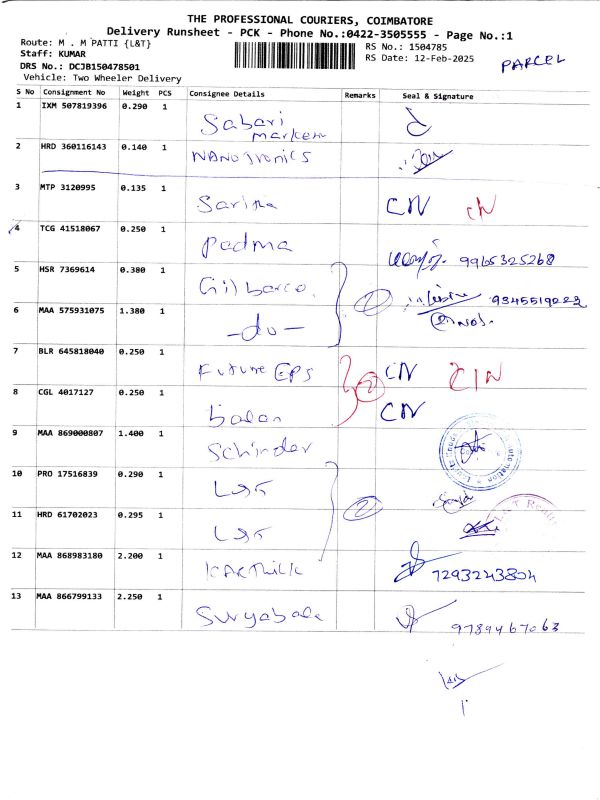 THE PROFESSIONAL COURIERS, COIMBATORE
Delivery Runsheet - PCK - Phone No.:0422-3505555 - Page No.:1
Route: M . M PATTI {L&T}
RS No.: 1504785
Staff: KUMAR
RS Date: 12-Feb-2025
PARCEL
DRS No.: DCJB150478501
Vehicle: Two Wheeler Delivery
S No Consignment No Weight PCS Consignee Details Remarks Seal & Signature
1 IXM 507819396 0.290 1 Sabari
2 HRD 360116143 0.140 1 NANOtronics
3 MTP 3120995 0.135 1 Sarina CN CN
4 TCG 41518067 0.250 1 Padma 9965325268
5 HSR 7369614 0.380 1 Gilbarco 2
6 MAA 575931075 1.380 1 -do-
7 BLR 645818040 0.250 1 Future GPS 2 CN CIN
8 CGL 4017127 0.250 1 balan CN
9 MAA 869000807 1.400 1 Schinder
10 PRO 17516839 0.290 1 2
11 HRD 61702023 0.295 1
12 MAA 868983180 2.200 1 KARthik 7293243804
13 MAA 866799133 2.250 1 Suryabala 9789467063